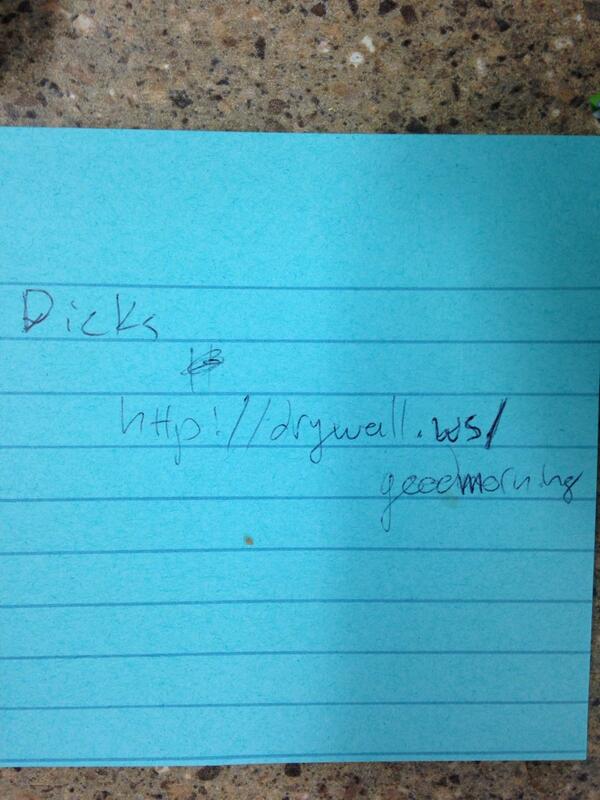 Dicks
http://drywall.ws/
goodmorning